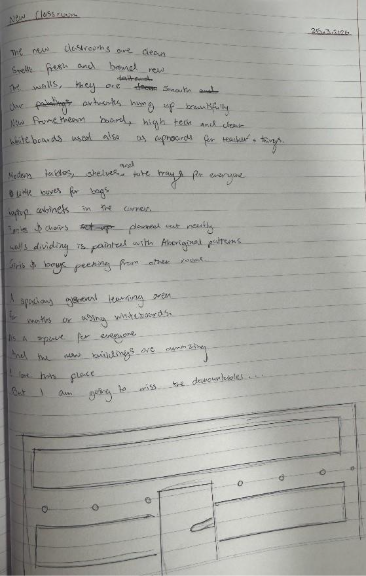 New Classroom
The new classrooms are clean
Smell fresh and brand new
walls, they are smooth and
Our artworks hung up beautifully
New Promethean board, high tech and clear
Whiteboards used also as cupboards for teacher things
Modern tables, shelves and tote trays for everyone
little boxes for bags
laptop cabinets in the corner
& chairs planned out neatly
walls dividing is painted with Aboriginal patterns
Girls & boys peeking from other rooms
A spacious general learning area
or using whiteboards
a space for everyone
the new buildings are amazing
this place
But I am going to miss the demountables...